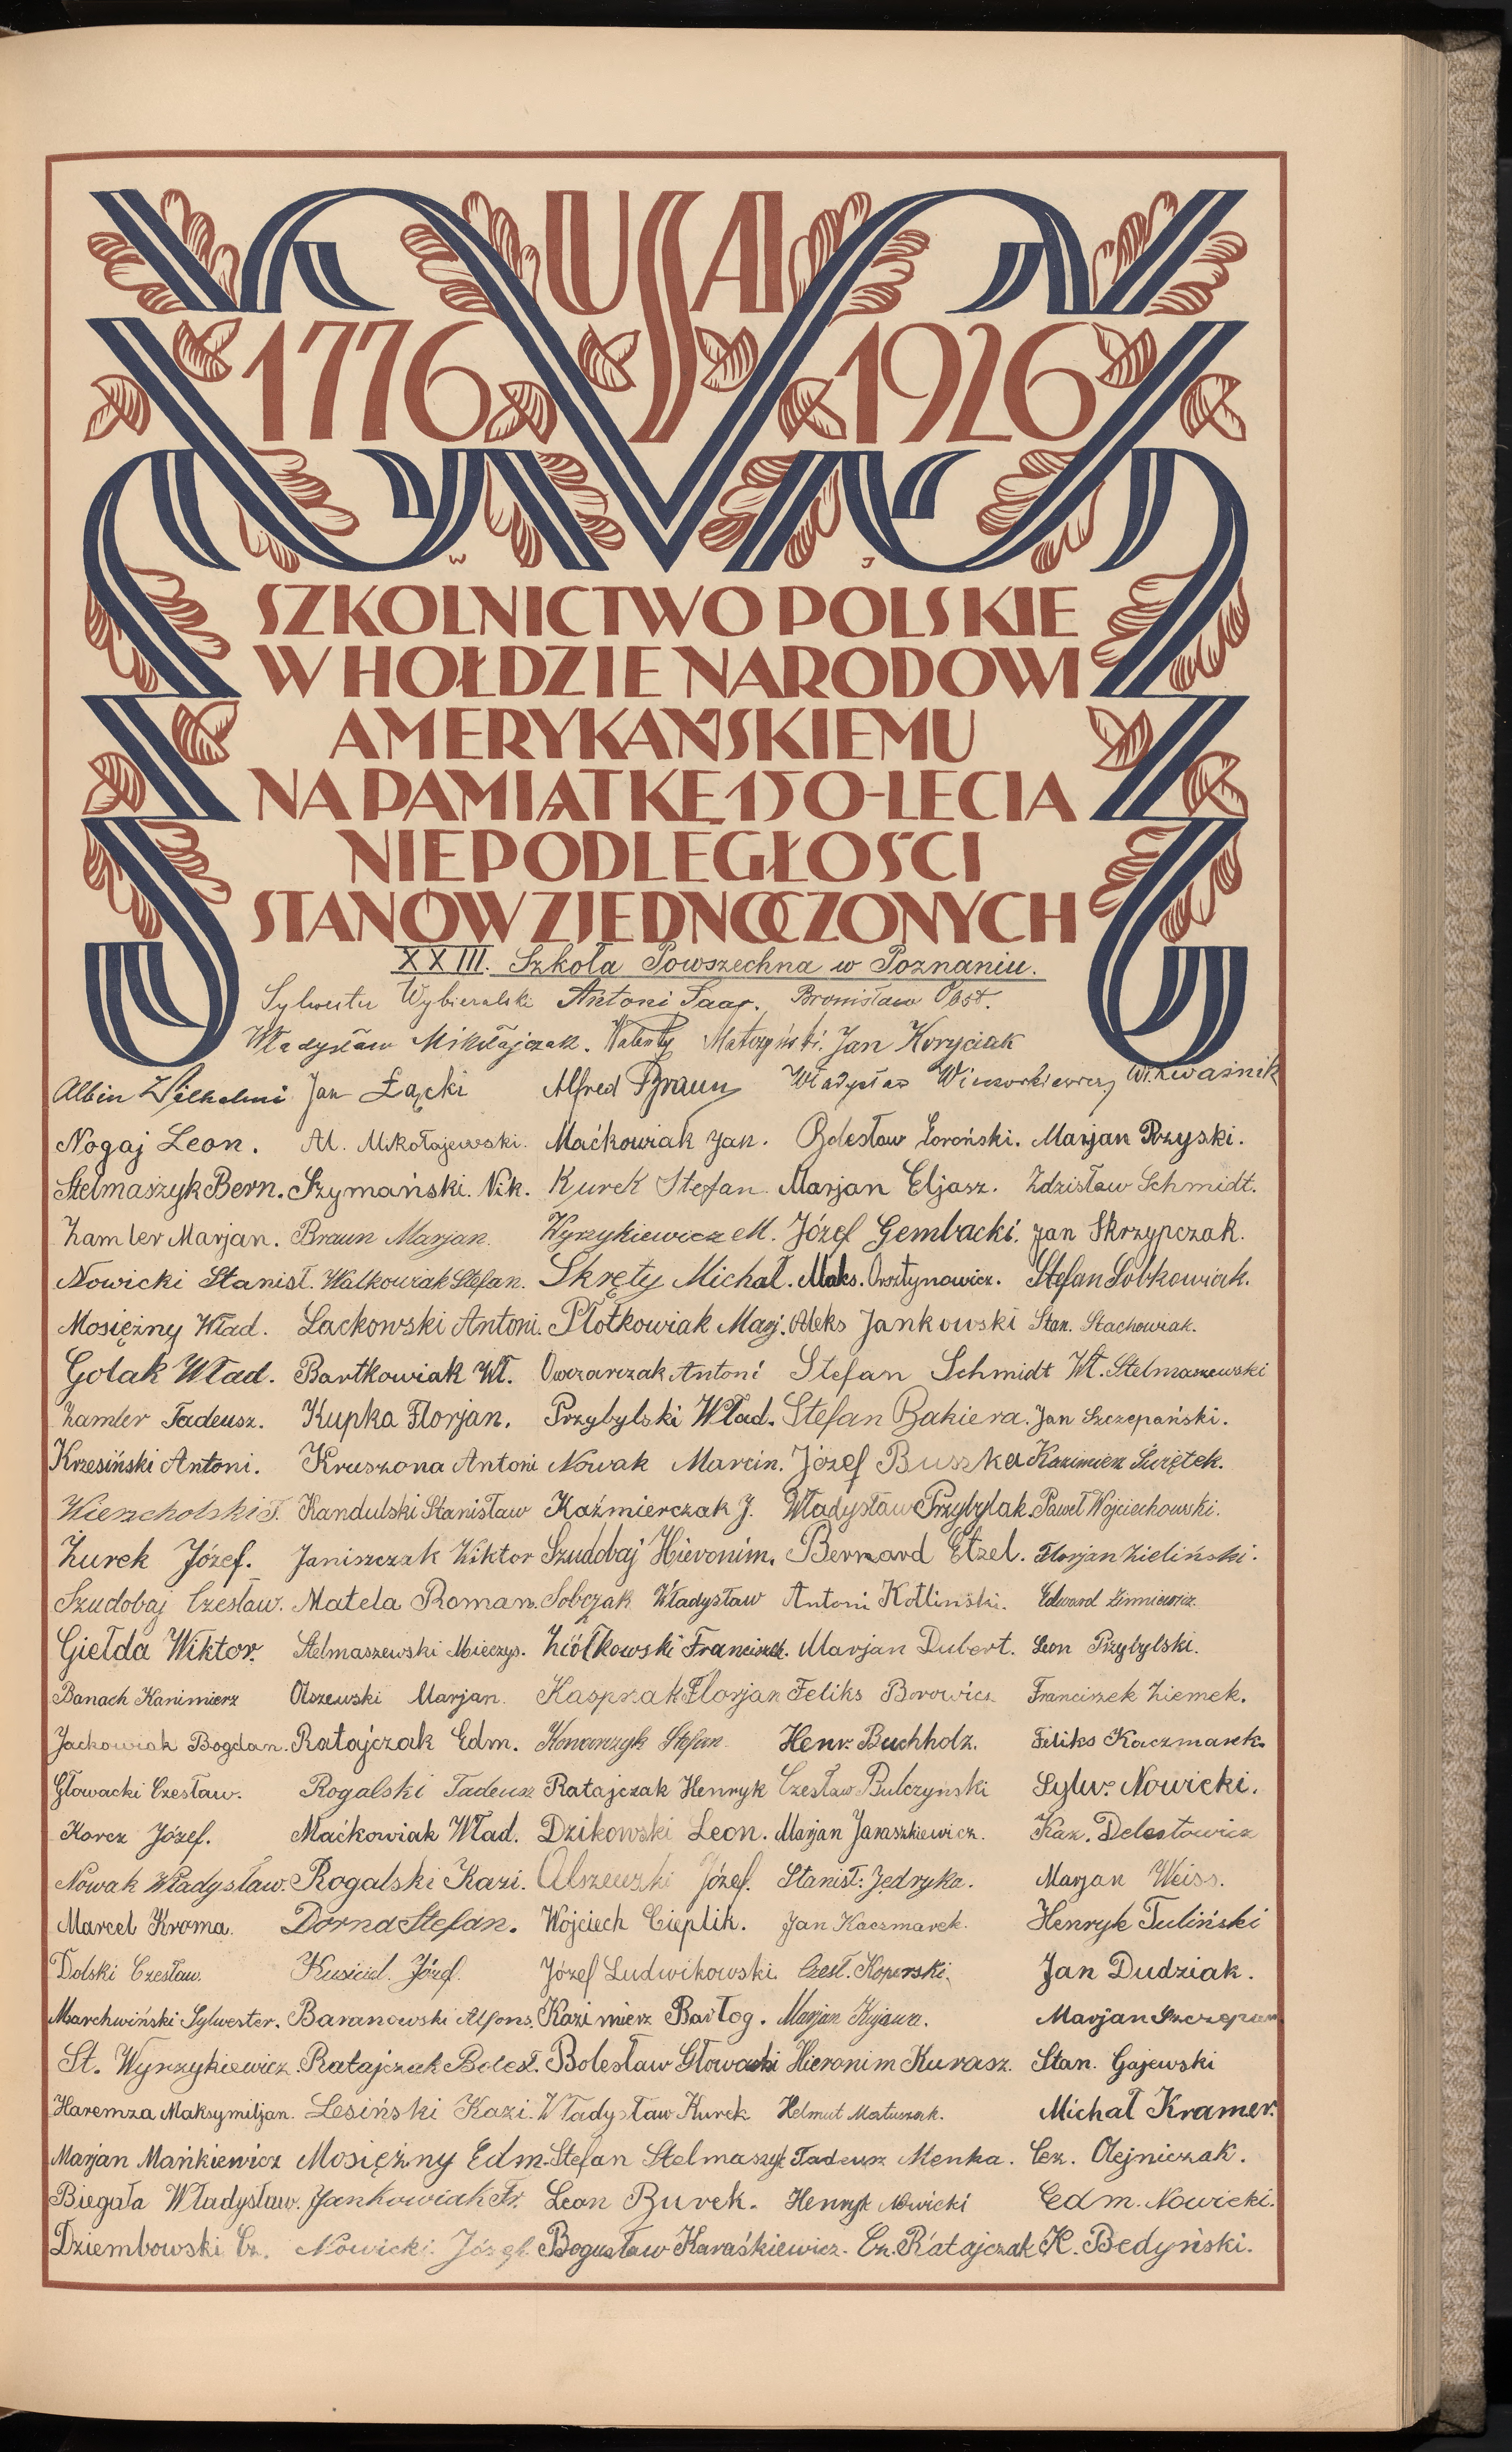 USA
1776 1926
W J
SZKOLNICTWO POLSKIE
W HOŁDZIE NARODOWI
AMERYKAŃSKIEMU
NA PAMIĄTKĘ 150-LECIA
NIEPODLEGŁOŚCI
STANÓW ZJEDNOCZONYCH
XXIII. Szkoła Powszechna w Poznaniu.
Sylwester Wybieralski Antoni Saar. Bronisław Obst.
Władysław Mikołajczak. Walenty Matczyński. Jan Koryciak
Albin Wilhelmi Jan Łącki Alfred Braun Władysław Wieczorkiewicz Wł. Kwaśnik
Nogaj Leon. Al. Mikołajewski. Maćkowiak Jan. Bolesław Loroński. Marjan Rzyski.
Stelmaszyk Bern. Szymański. Nik. Kurek Stefan. Marjan Eljasz. Zdzisław Schmidt.
Zamler Marjan. Braun Marjan. Wyrzykiewicz M. Józef Gembacki. Jan Skrzypczak.
Nowicki Stanisł. Walkowiak Stefan. Skręty Michał. Maks. Orsztynowicz. Stefan Sobkowiak.
Mosiężny Wład. Lackowski Antoni. Płotkowiak Marj. Aleks Jankowski Stan. Stachowiak.
Golak Wład. Bartkowiak Wł. Owczarczak Antoni Stefan Schmidt Wł. Stelmaszewski
Zamler Tadeusz. Kupka Florjan. Przybylski Wład. Stefan Bakiera. Jan Szczepański.
Krzesiński Antoni. Kruszona Antoni Nowak Marcin. Józef Buszka Kazimierz Świętek.
Wierzcholski T. Kandulski Stanisław Kaźmierczak J. Władysław Przybylak Paweł Wojciechowski.
Żurek Józef. Janiszczak Wiktor Szudobaj Hieronim. Bernard Etzel. Florjan Zieliński.
Szudobaj Czesław. Matela Roman. Sobczak Władysław Antoni Kotlinski. Edward Zimniewicz.
Giełda Wiktor. Stelmaszewski Mieczys. Ziółkowski Franciszek. Marjan Dubert. Leon Przybylski.
Banach Kazimierz Olszewski Marjan. Kasprzak Florjan Feliks Borowicz Franciszek Ziemek.
Jackowiak Bogdan. Ratajczak Edm. Konarczyk Stefan Henr. Buchholz. Feliks Kaczmarek.
Głowacki Czesław. Rogalski Tadeusz Ratajczak Henryk Czesław Bulczyński Sylw. Nowicki.
Korcz Józef. Maćkowiak Wład. Dzikowski Leon. Marjan Jaraszkiewicz. Kaz. Delestowicz
Nowak Władysław. Rogalski Kazi. Olszewski Józef. Stanisł. Jędryka. Marjan Weiss.
Marcel Kroma. Dorna Stefan. Wojciech Cieplik. Jan Kaczmarek. Henryk Tuliński
Dolski Czesław. Kusiciel. Józef. Józef Ludwikowski. Czesł. Koperski. Jan Dudziak.
Marchwiński Sylwester. Baranowski Alfons. Kazimierz Barłog. Marjan Kujawa. Marjan Szczepan
St. Wyrzykiewicz. Ratajczak Bolesł. Bolesław Głowacki Hieronim Kurasz. Stan. Gajewski
Haremza Maksymiljan. Lesiński Kazi. Władysław Kurek Helmut Matuszak. Michał Kramer.
Marjan Mańkiewicz Mosiężny Edm. Stefan Stelmaszyk Tadeusz Menka. Cez. Olejniczak.
Biegała Władysław. Jankowiak Fr. Leon Burek. Henryk Nowicki Edm. Nowicki.
Dziembowski Cz. Nowicki Józef Bogusław Karaśkiewicz. Cz. Ratajczak K. Bedyński.